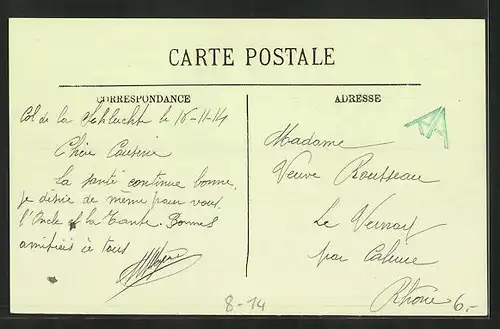 CARTE POSTALE
CORRESPONDANCE
ADRESSE
Col de la Schlucht le 16-11-14
Chère Cousine
La santé continue bonne,
je désire de même pour vous
l'Oncle et la Tante. Bonnes
amitiés à tous
Madame
Veuve Rousseau
Le Vernay
par Caluire
Rhône
6.-
8-14